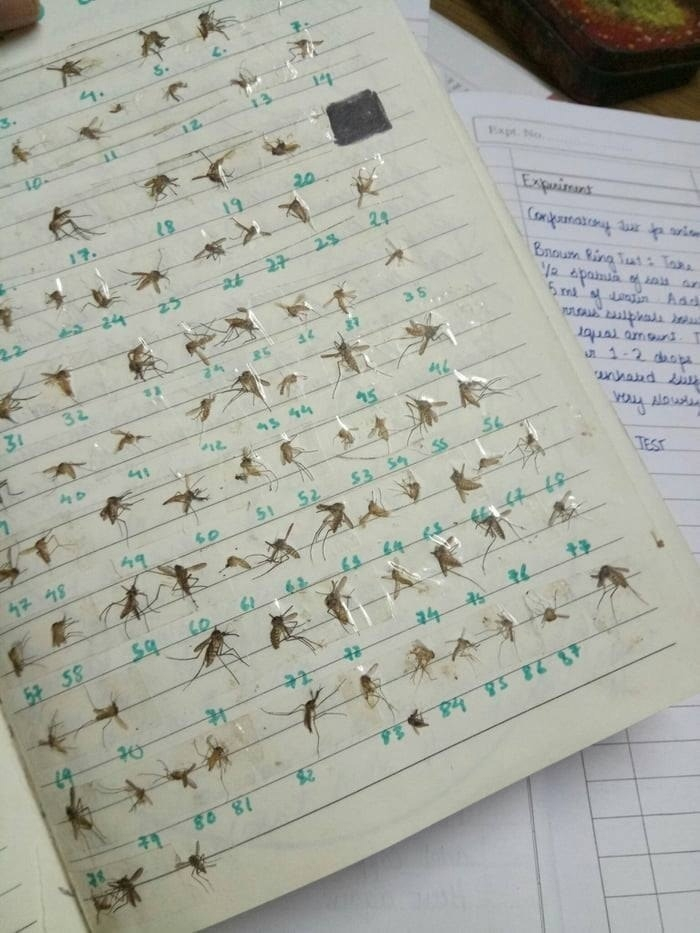 3. 4. 5. 6. 7.
10. 11 12 13 14
17. 18 19 20
22 23 24 25 26 27 28 29
31 32 33 34 35 36 37 35
40 41 42 43 44 45 46
47 48 49 50 51 52 53 54 55 56
57 58 59 60 61 62 63 64 65 66 67 68
69 70 71 72 73 74 75 76 77
78 79 80 81 82 83 84 85 86 87
Expt. No.
Experiment
Confirmatory Test for anion
Brown Ring Test : Take
1/2 spatula of salt an
5 ml of water. Add
rrous sulphate solu
equal amount. T
1-2 drops
very slowly
TEST